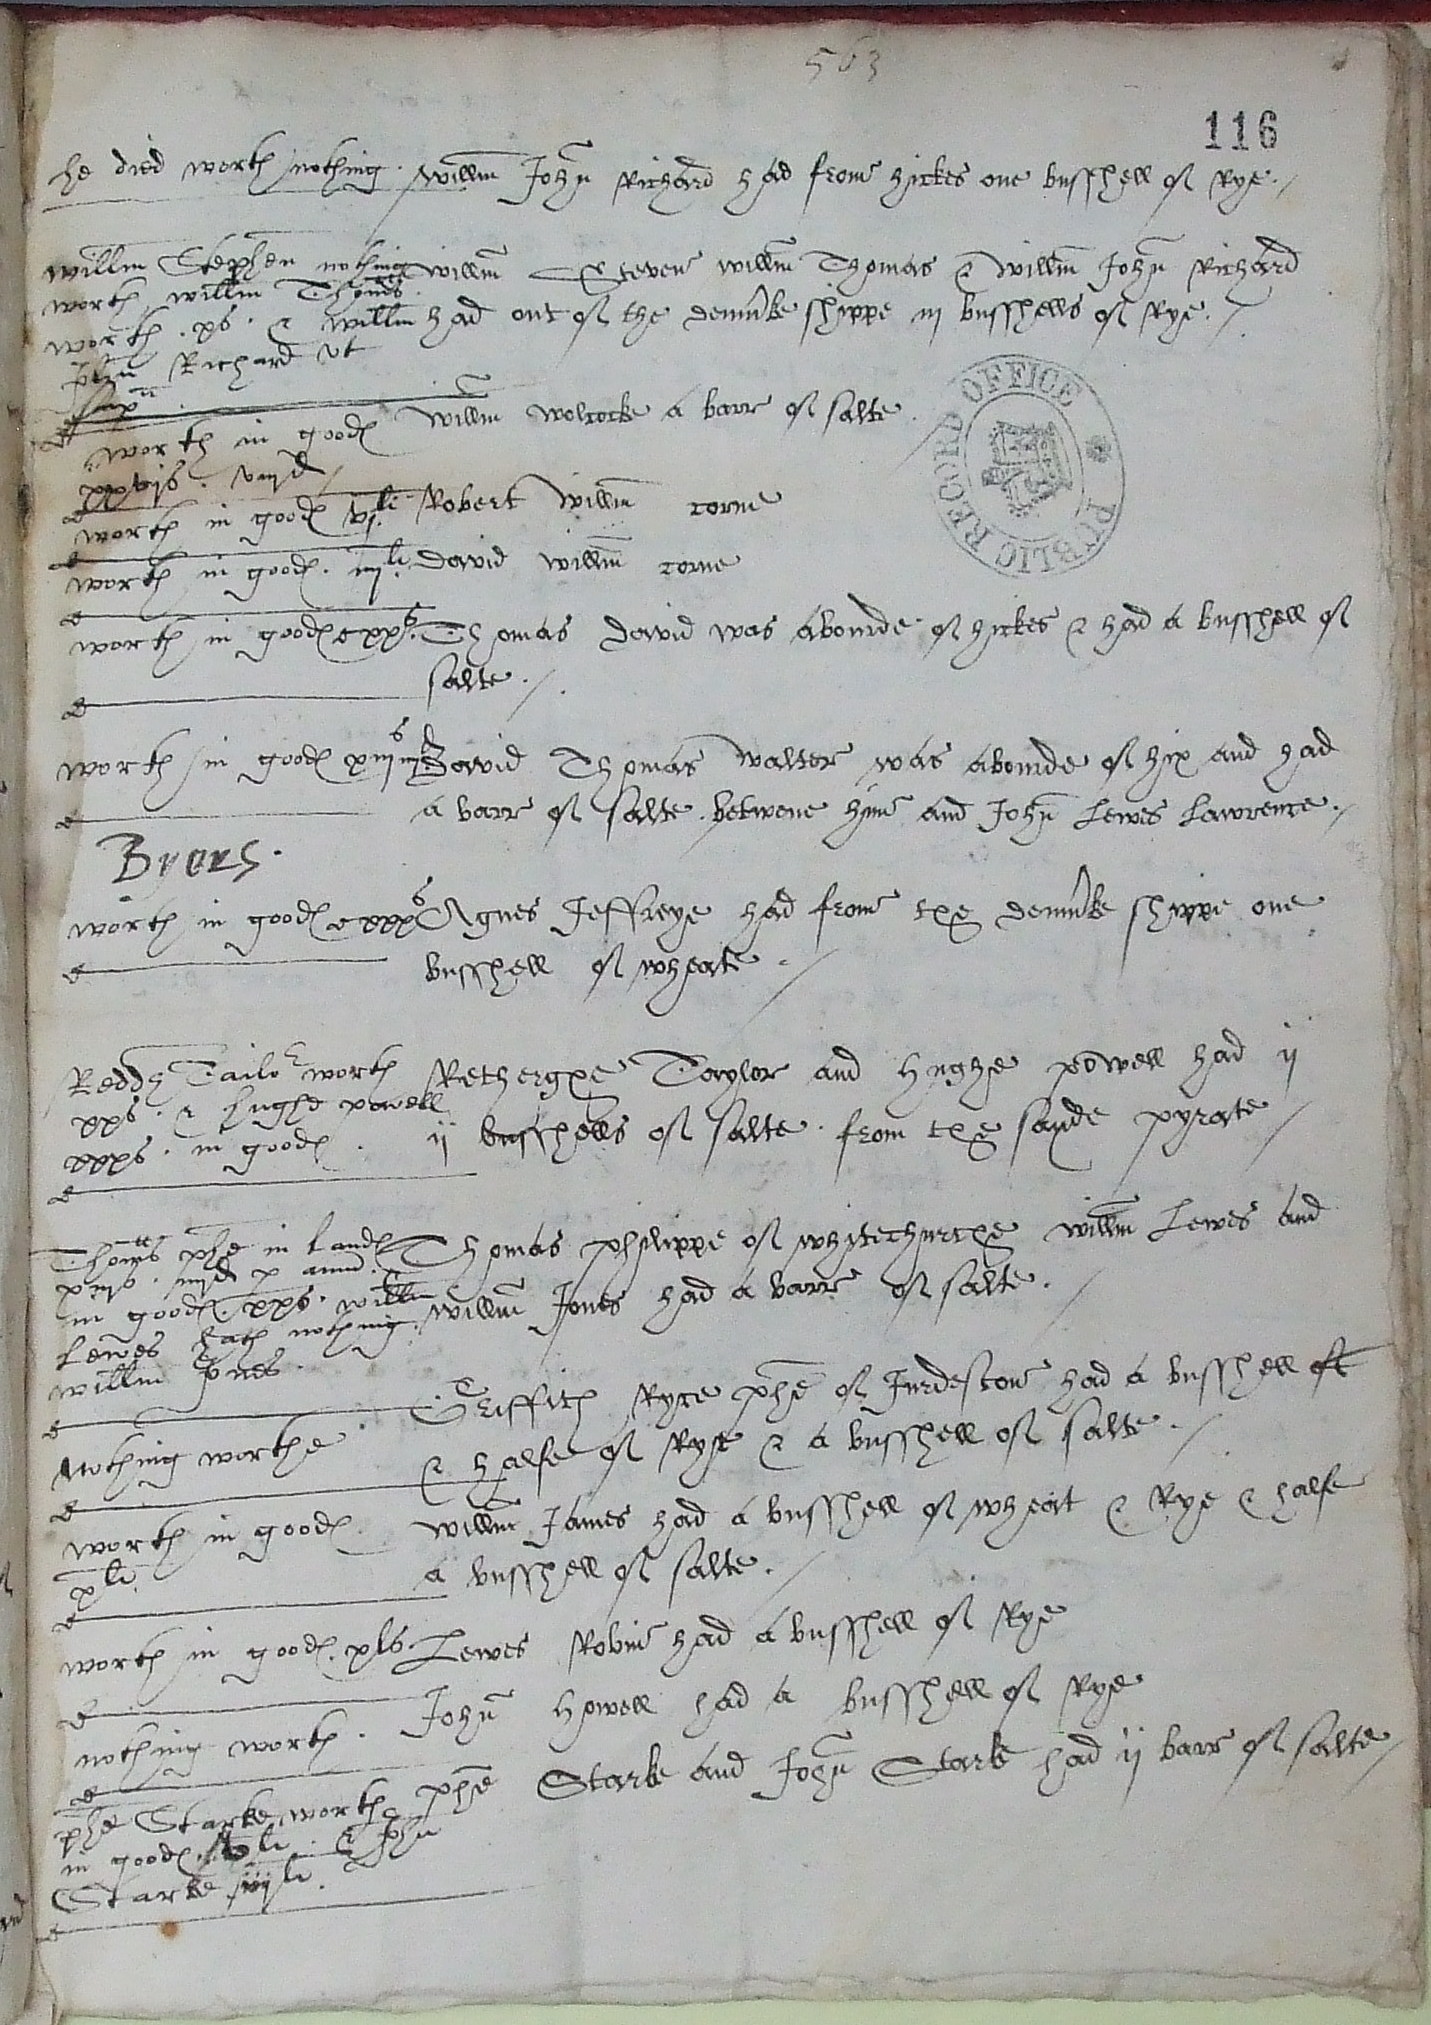 563
116
he died worth nothing . Willm John Richard had from hickes one busshell of Rye ./
Willm Stephen nothing
worth Willm Thomas
worth . xs . & Willm
John Richard ut
supra
Willm Steven Willm Thomas & Willm John Richard
had out of the denmke shippe iij busshells of Rye ./
worth in good
viijd
Willm Wolcocke a barr of salte .
worth in good vjli Robert Willm corne
worth in good . iijli David Willm corne
worth in good cxxs . Thomas David was abourde of hickes & had a busshell of
salte ./.
worth in good xiijs iiijd David Thomas Walter was abourde of hix and had
a barr of salte . betwene hym and John Lewes Lawrence ./
Byers .
worth in good cxxxs Agnes Jeffreye had from the denmke shippe one
busshell of wheate ./
Reddz Tailor worth
xxs . & hughe powell
xxxs . in good .
Rethergxe Taylor and Hughe powell had ij
ij busshells of salte . from the saide pyrate /
Thoms phe in land
xiijs . iiijd p annu .
in good . xxs . Willm
Lewes hath nothing .
Willm Jones .
Thomas phillippe of Whitechurche Willm Lewes and
Willm Jones had a barr of salte ./
Nothing worthe
Griffith Ryce phe of Jurdeston had a busshell of
& halfe of Rye & a busshell of salte ./
worth in good .
xli .
Willm James had a busshell of wheat & Rye & halfe
a busshell of salte ./
worth in good . xls Lewes Robin had a busshell of Rye
nothing worth . John Howell had a busshell of Rye
phe Starke worth
in good . li . & John
Starke iijli .
phe Starke and John Starke had ij barr of salte /
PUBLIC RECORD OFFICE